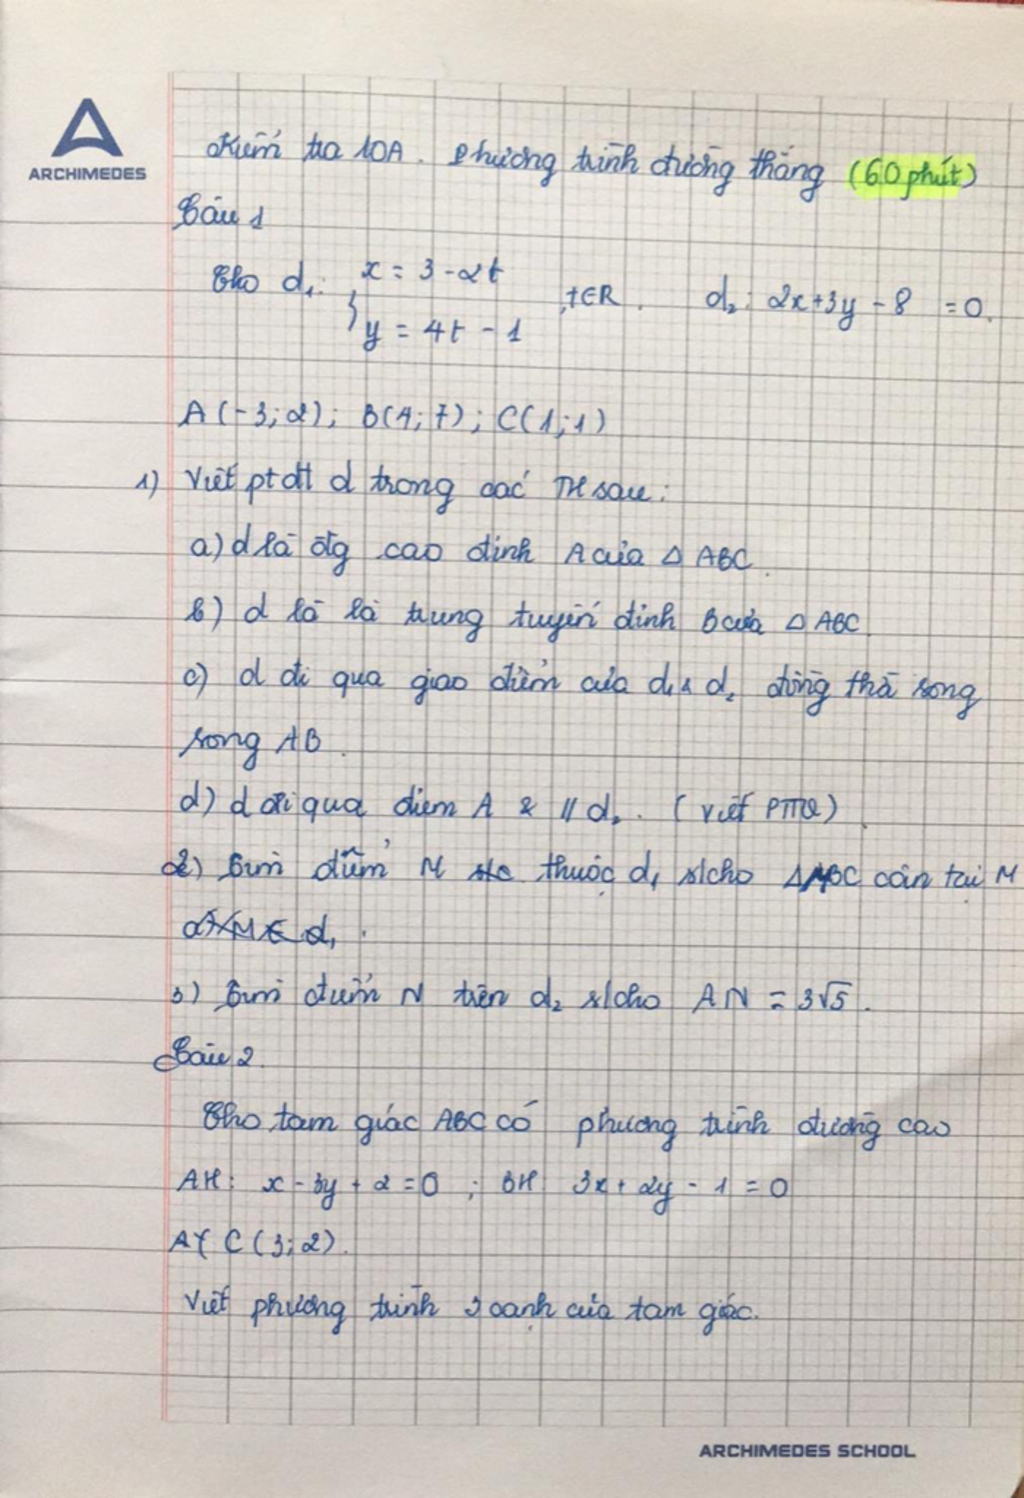 ARCHIMEDES
Kiểm tra 10A. Phương trình đường thẳng (60 phút)
Câu 1
Cho d₁: { x = 3 - 2t
y = 4t - 1 , t∈R. d₂: 2x+3y - 8 = 0.
A(-3; 2); B(4; 7); C(1; 1)
1) Viết pt đt d trong các TH sau:
a) d là đg cao đỉnh A của Δ ABC.
b) d là là trung tuyến đỉnh B của Δ ABC
c) d đi qua giao điểm của d₁ & d₂ đồng thà song
song AB.
d) d đi qua điểm A & // d₂. (viết PTTQ)
2) Tìm điểm M thuộc d₁ s/cho ΔMBC cân tại M
M ∈ d₁.
3) Tìm điểm N trên d₂ s/cho AN = 3√5.
Câu 2.
Cho tam giác ABC có phương trình đường cao
AH: x - 3y + 2 = 0 ; BH 3x + 2y - 1 = 0
C(3; 2).
Viết phương trình 3 cạnh của tam giác.
ARCHIMEDES SCHOOL